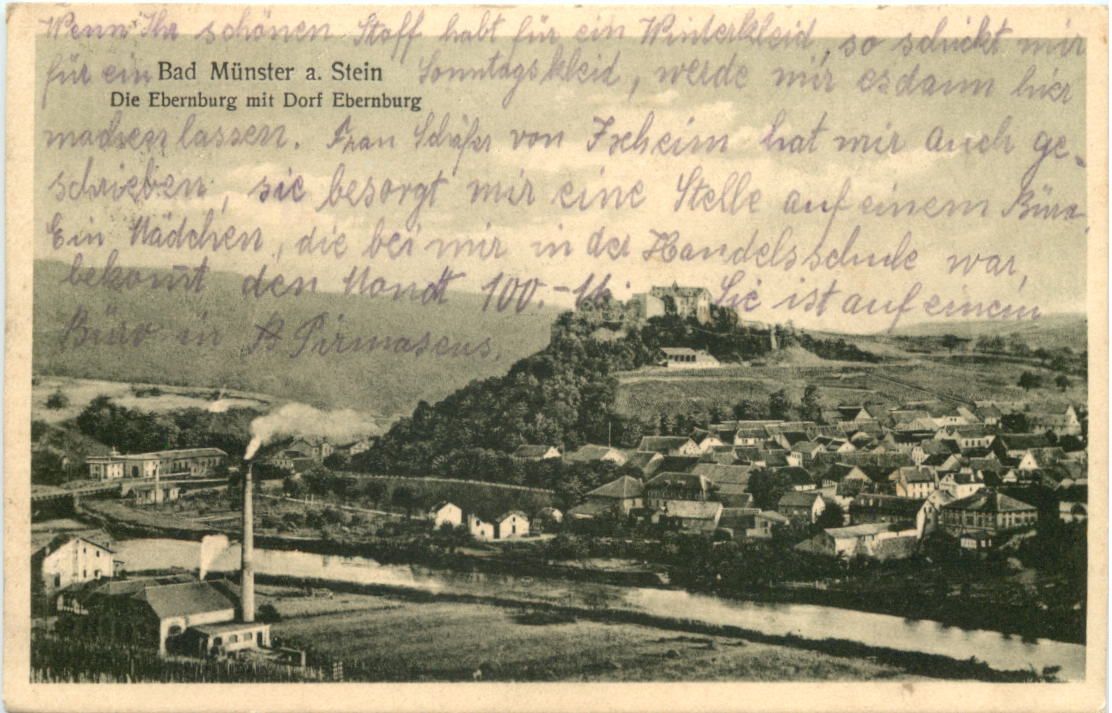 Wenn Ihr schönen Stoff habt für ein Winterkleid, so schickt mir
für ein Sonntagskleid, werde mir es dann hier
Bad Münster a. Stein
Die Ebernburg mit Dorf Ebernburg
machen lassen. Frau Schäfer von hat mir auch ge-
schrieben, sie besorgt mir eine Stelle auf einem Büro.
Ein Mädchen, die bei mir in der Handelsschule war,
bekommt den Monat 100.- M. Sie ist auf einem
Büro in Pirmasens.